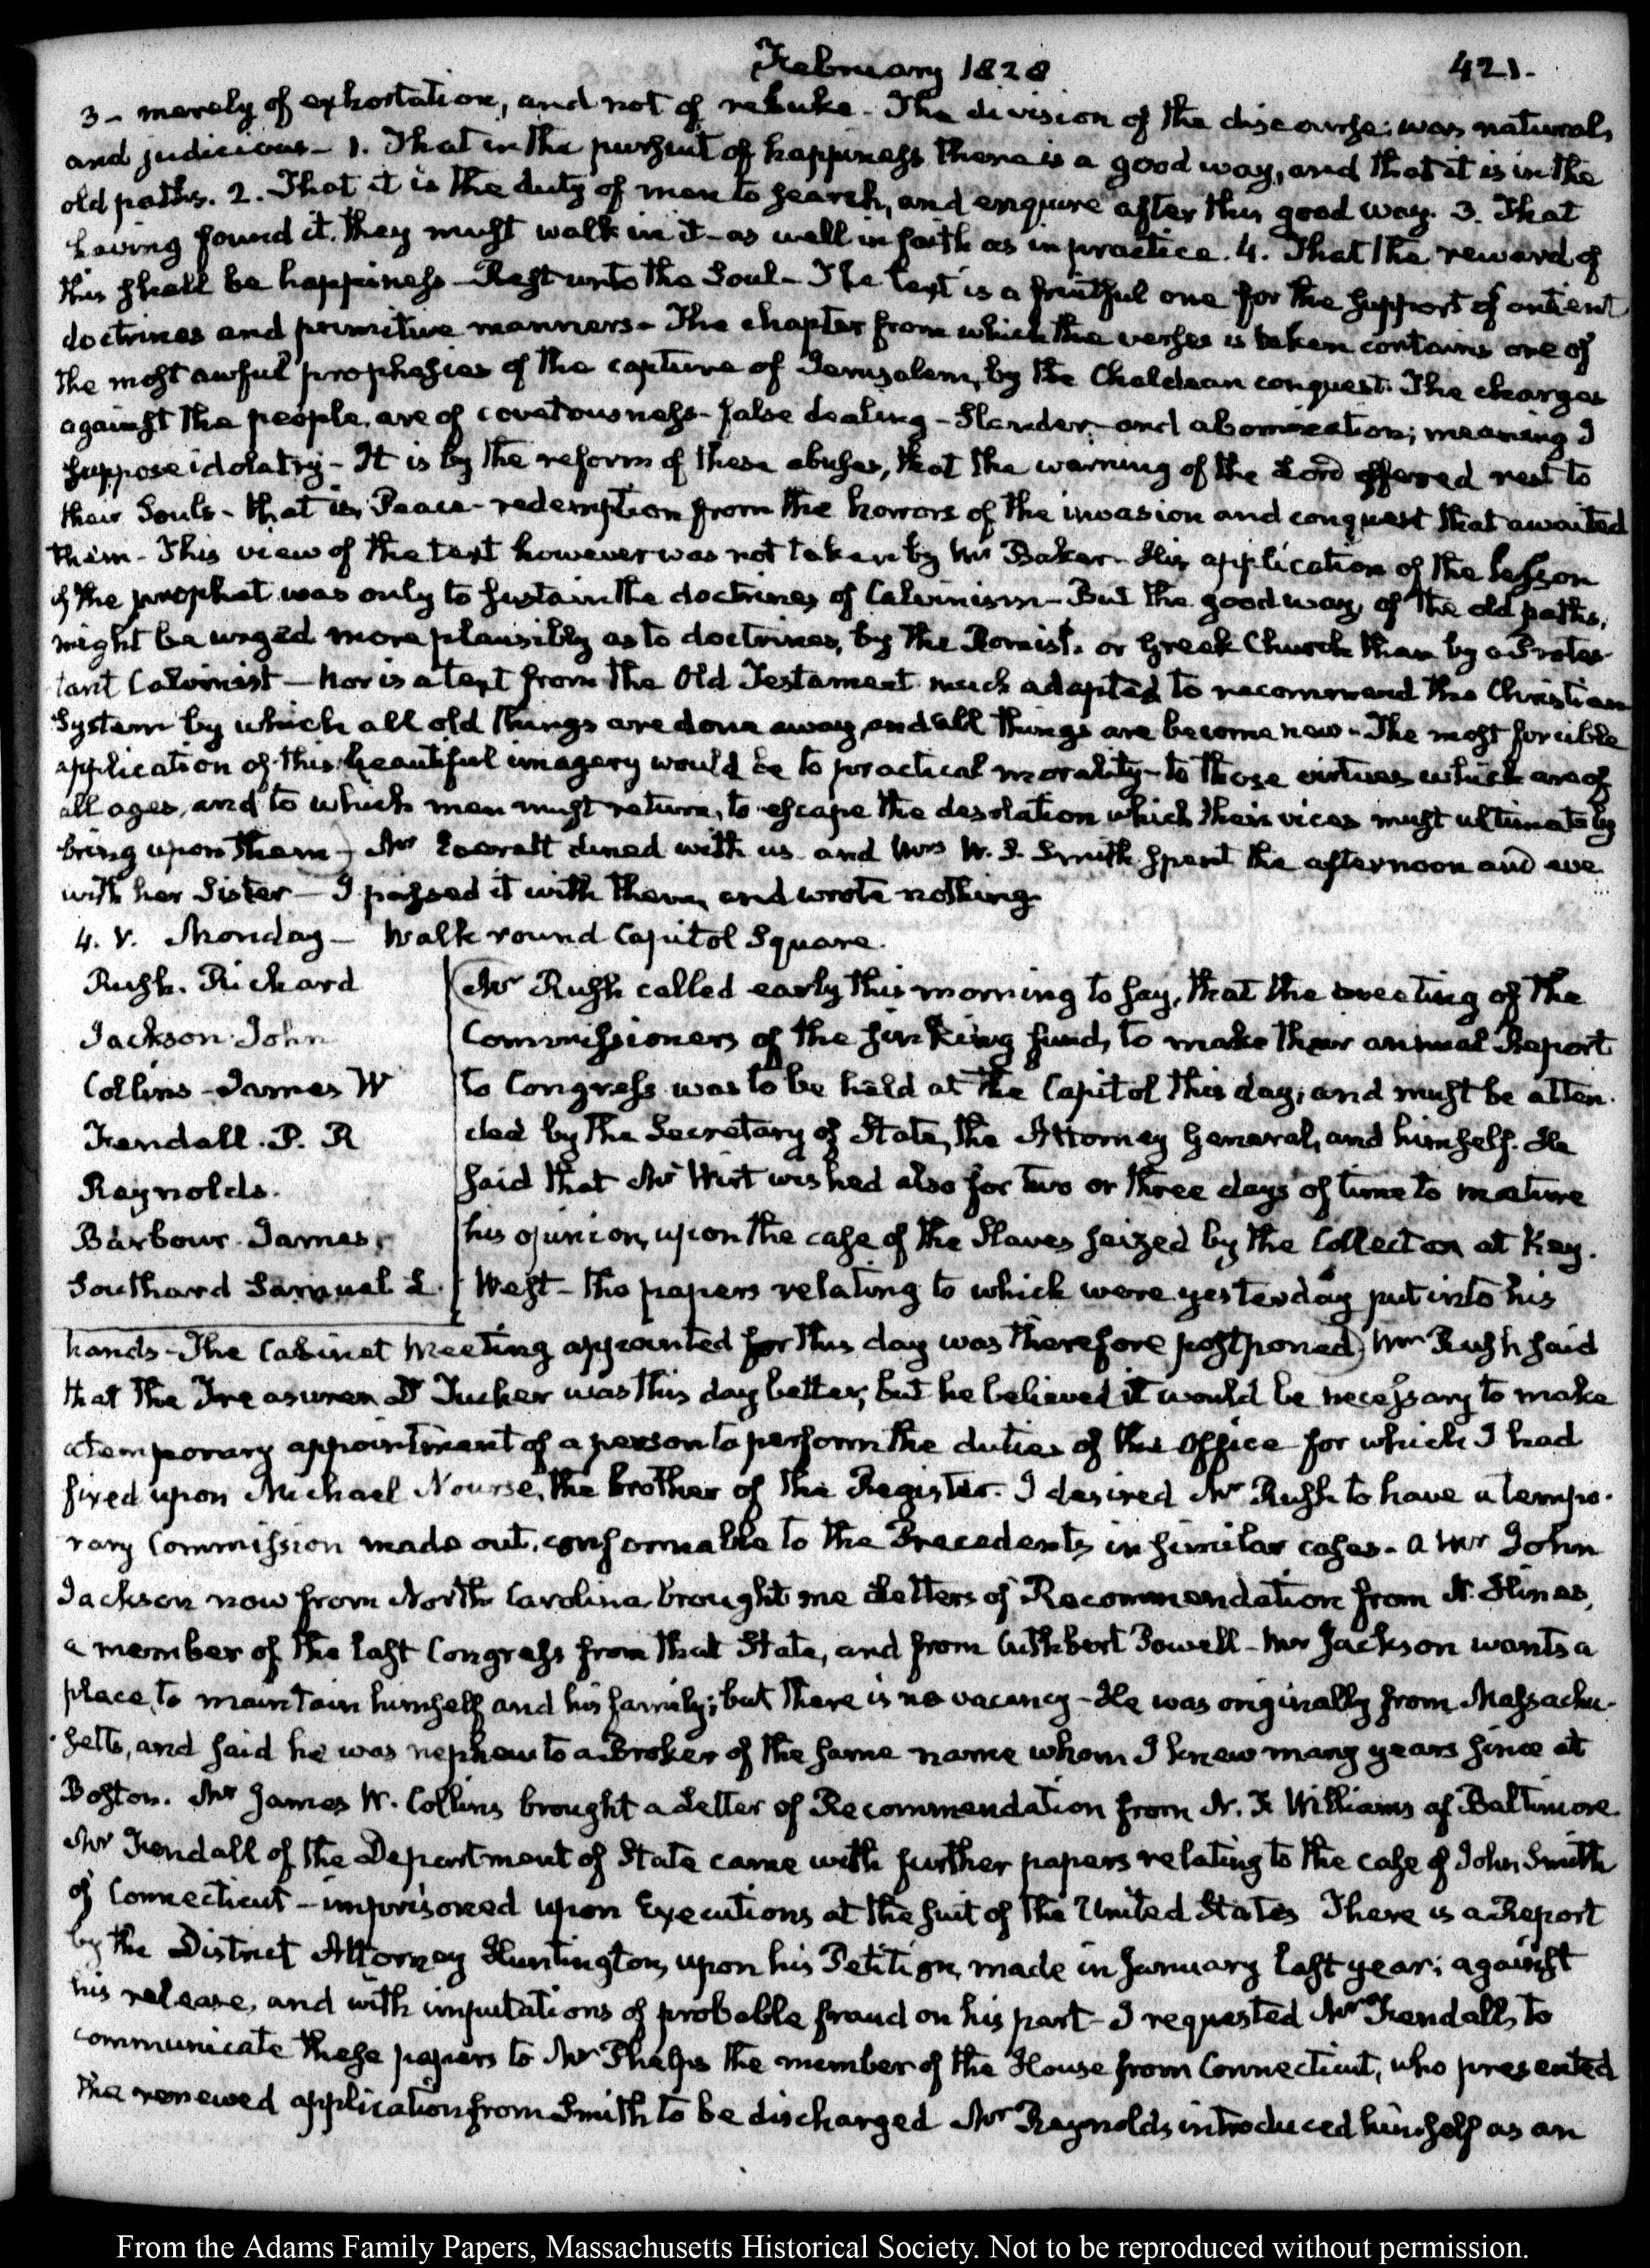 February 1828
421.
3 - merely of exhortation, and not of rebuke - The division of the discourse, was natural,
and judicious - 1. That in the pursuit of happiness there is a good way, and that it is in the
old paths. 2. That it is the duty of man to search, and enquire after this good way. 3. That
having found it, they must walk in it - as well in faith as in practice. 4. That the reward of
this shall be happiness - Rest unto the Soul - The text is a fruitful one for the support of antient
doctrines and primitive manners - The chapter from which the verses is taken contains one of
the most awful prophesies of the capture of Jerusalem, by the Chaldean conquest. The charges
against the people, are of covetousness - false dealing - Slander, and abomination; meaning I
suppose idolatry - It is by the reform of these abuses, that the warning of the Lord offered rest to
their Souls - that is, Peace - redemption from the horrors of the invasion and conquest that awaited
them - This view of the text however was not taken by Mr Baker - His application of the lesson
of the prophet was only to sustain the doctrines of Calvinism - But the good way, of the old paths,
might be urged more plausibly as to doctrines, by the Romish or Greek Church than by a Protes-
tant Calvinist - Nor is a text from the Old Testament much adapted to recommend the Christian
System by which all old things are done away, and all things are become new - The most forcible
application of this beautiful imagery would be to practical morality - to those virtues which are of
all ages, and to which men must return, to escape the desolation which their vices must ultimately
bring upon them - Mr Everett dined with us and Mrs W. S. Smith spent the afternoon and eve
with her Sister - I passed it with them, and wrote nothing
4. V. Monday - Walk round Capitol Square.
Rush. Richard
Jackson John
Collins - James W
Kendall. P. R
Reynolds.
Barbour. James,
Southard Samuel L.
Mr Rush called early this morning to say, that the meeting of the
Commissioners of the sinking fund, to make their annual Report
to Congress was to be held at the Capitol this day, and must be atten-
ded by the Secretary of State, the Attorney General, and himself. He
said that Mr Wirt wished also for two or three days of time to mature
his opinion, upon the case of the Slaves seized by the Collector at Key.
West - the papers relating to which were yesterday put into his
hands - The Cabinet Meeting appointed for this day was therefore postponed) Mr Rush said
that the Treasurer Dr Tucker was this day better, but he believed it would be necessary to make
a temporary appointment of a person to perform the duties of the Office for which I had
fixed upon Michael Nourse, the brother of the Register. I desired Mr Rush to have a tempo-
rary Commission made out, conformable to the Precedents in similar cases - a Mr John
Jackson now from North Carolina brought me Letters of Recommendation from R. Hines,
a member of the last Congress from that State, and from Cuthbert Powell - Mr Jackson wants a
place, to maintain himself and his family; but there is no vacancy - He was originally from Massachu-
setts, and said he was nephew to a Broker of the same name whom I knew many years since at
Boston. Mr James W. Collins brought a Letter of Recommendation from N. F. Williams of Baltimore
Mr Kendall of the Department of State came with further papers relating to the case of John Smith
of Connecticut - imprisoned upon Executions at the suit of the United States There is a Report
by the District Attorney Huntington, upon his Petition, made in January last year; against
his release, and with imputations of probable fraud on his part - I requested Mr Kendall, to
communicate these papers to Mr Phelps the member of the House from Connecticut, who presented
the renewed application from Smith to be discharged Mr Reynolds introduced himself as an
From the Adams Family Papers, Massachusetts Historical Society. Not to be reproduced without permission.